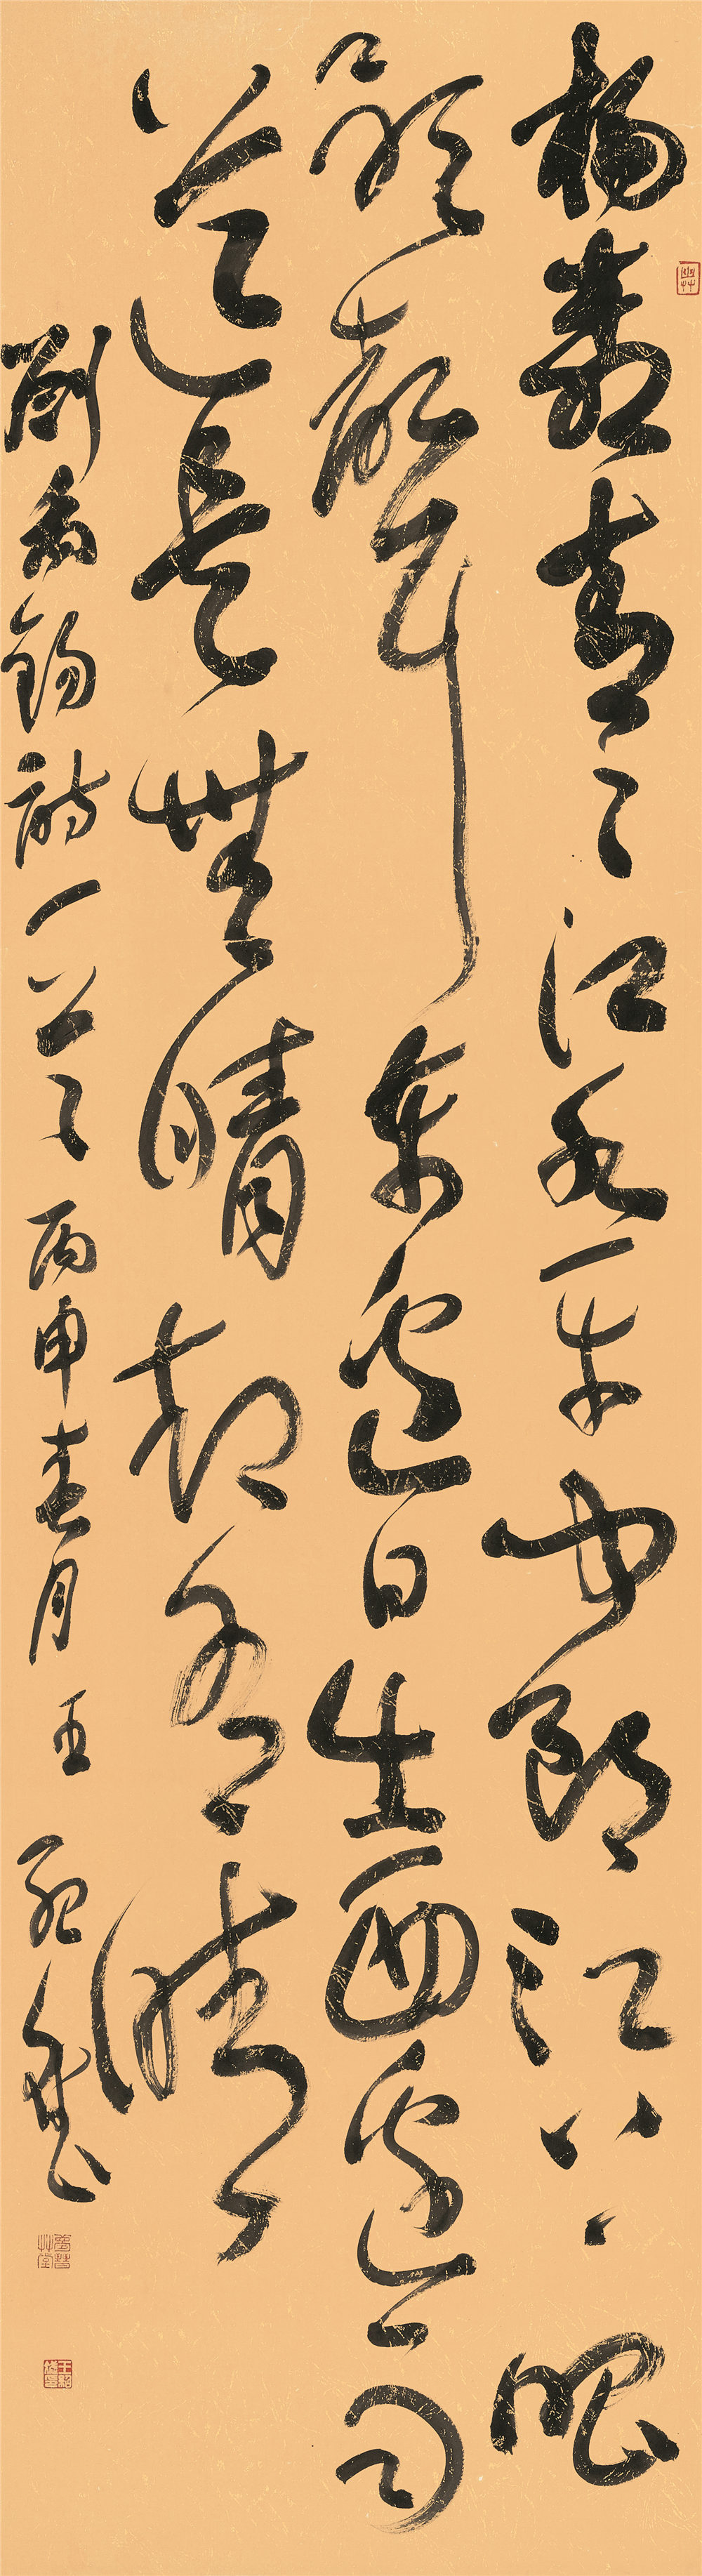 楊柳青〻江水平聞郎江上唱
歌聲東邊日出西邊雨
道是無晴却有晴
劉禹錫詩一首丙申春月王